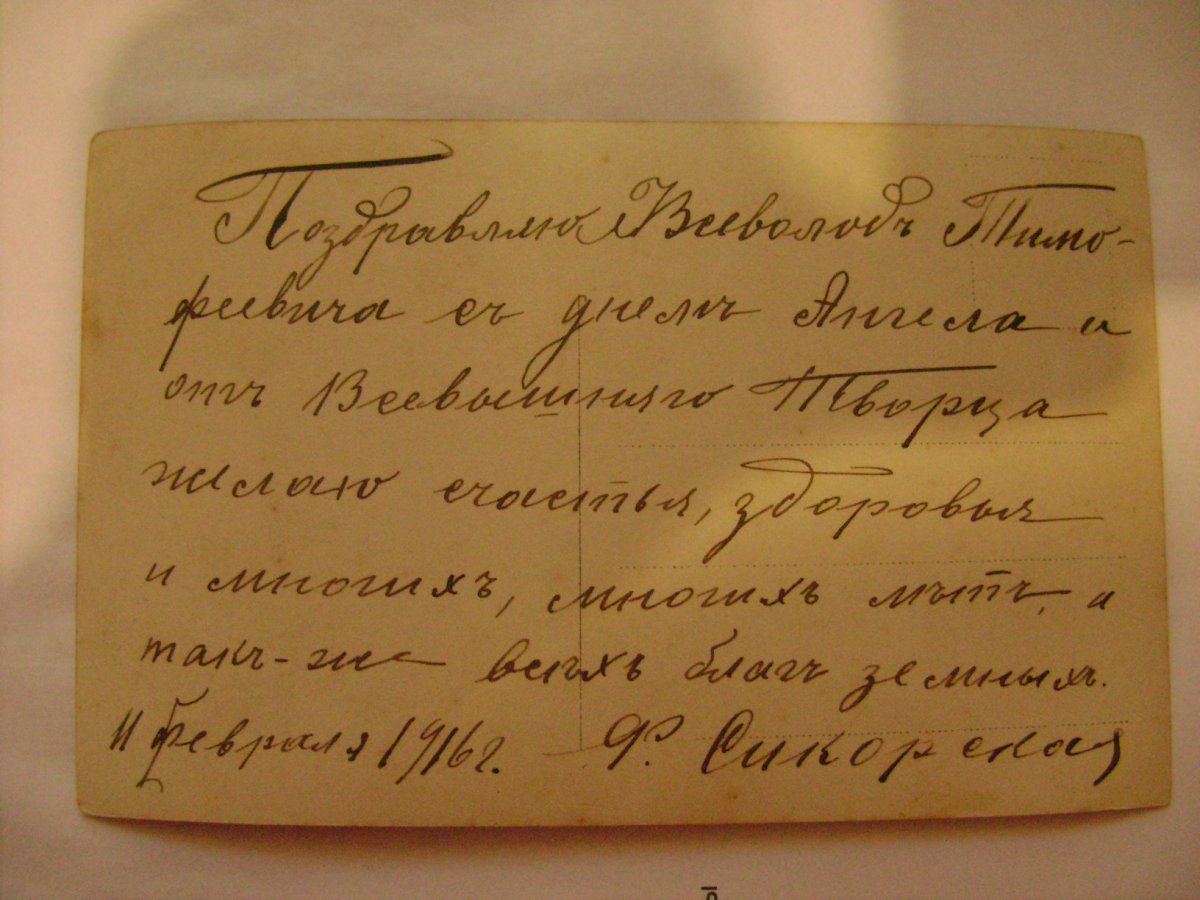 Поздравляю Всеволодъ Тимо-
феевича съ днемъ Ангела и
отъ Всевышняго Творца
желаю счастья, здоровья
и многихъ, многихъ лѣтъ, а
такъ-же всѣхъ благъ земныхъ.
11 февраля 1916 г. Ф. Сикорская